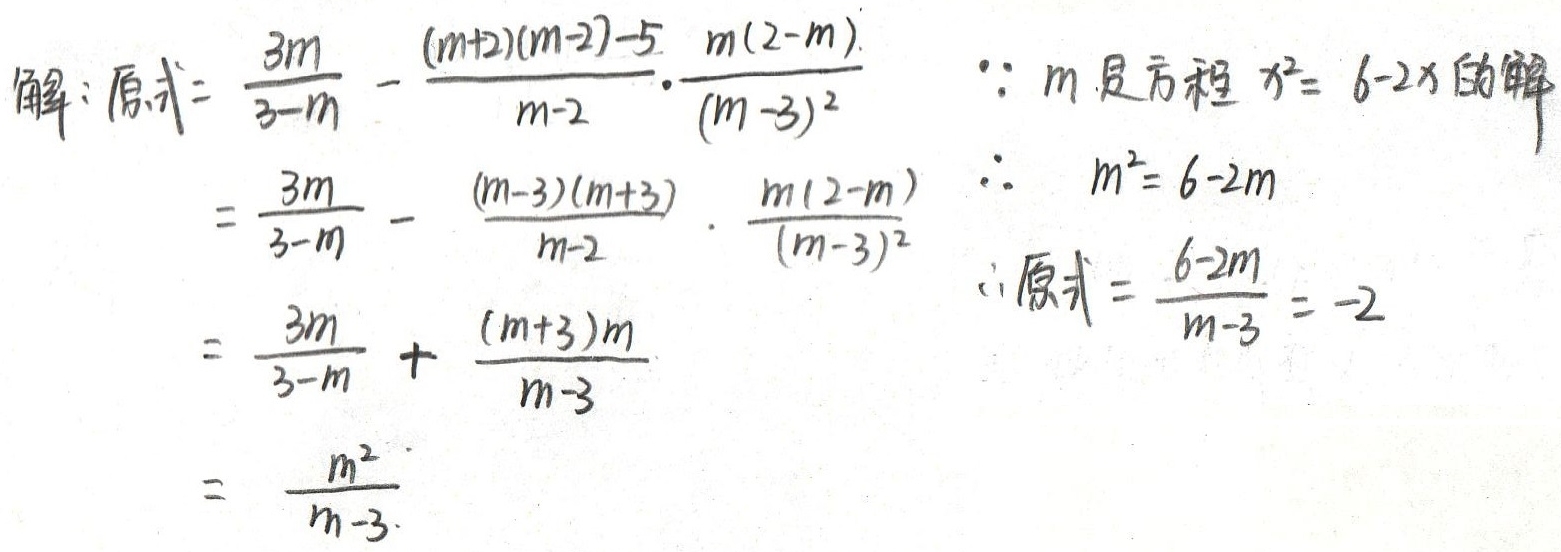 解：原式 = \frac{3m}{3-m} - \frac{(m+2)(m-2)-5}{m-2} · \frac{m(2-m)}{(m-3)^2}
= \frac{3m}{3-m} - \frac{(m-3)(m+3)}{m-2} · \frac{m(2-m)}{(m-3)^2}
= \frac{3m}{3-m} + \frac{(m+3)m}{m-3}
= \frac{m^2}{m-3}.
∵ m是方程 x^2 = 6-2x 的解
∴ m^2 = 6-2m
∴原式 = \frac{6-2m}{m-3} = -2